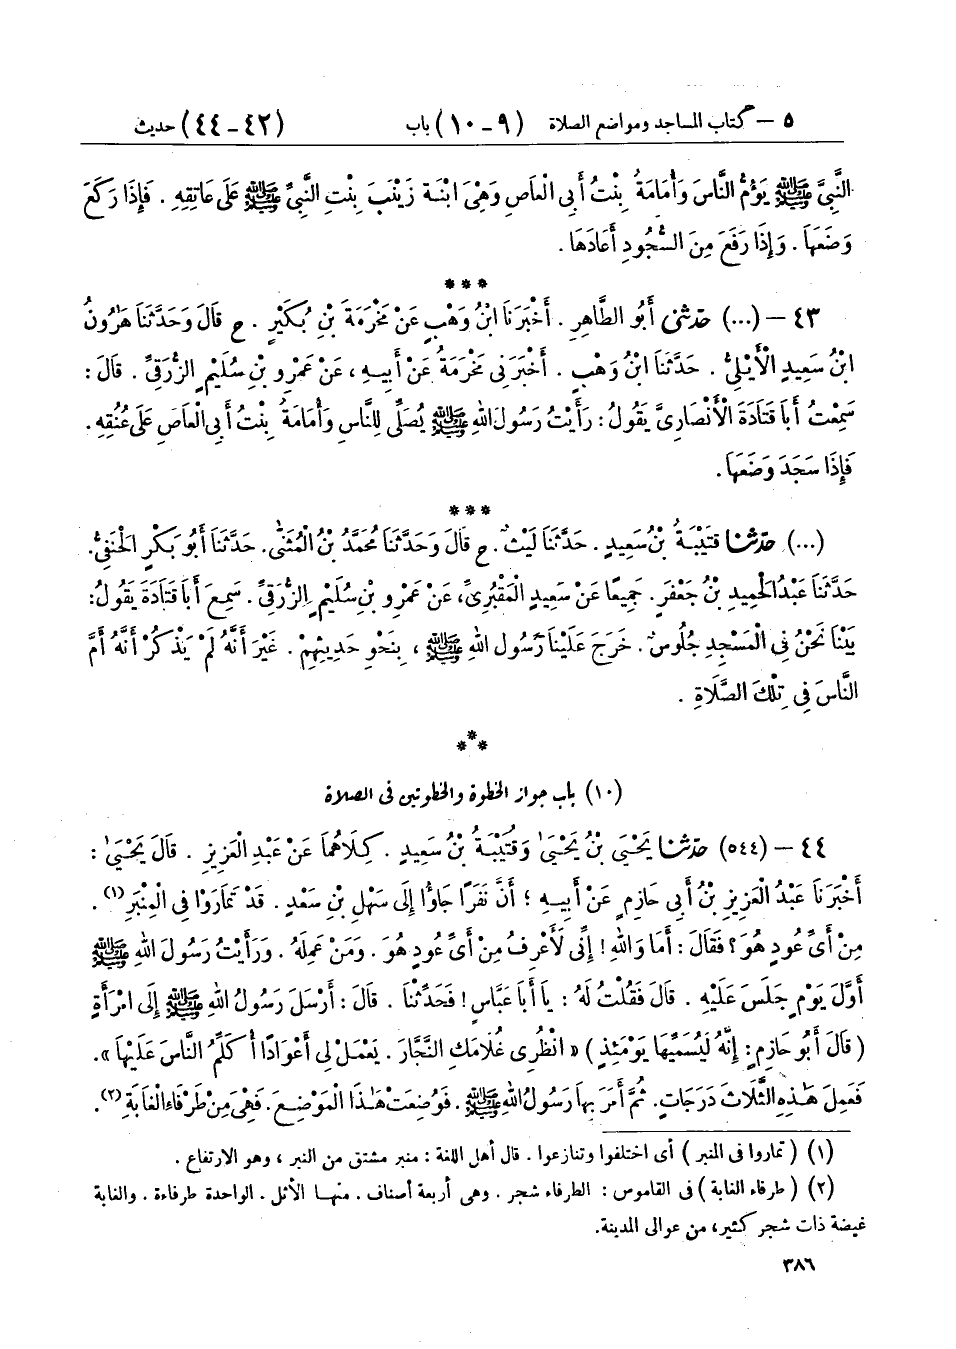 ٥ — كتاب المساجد ومواضع الصلاة (٩-١٠) باب (٤٢-٤٤) حديث
النَّبِيَّ ﷺ يَؤُمُّ النَّاسَ وَأُمَامَةُ بِنْتُ أَبِى الْعَاصِ وَهْىَ ابْنَةُ زَيْنَبَ بِنْتِ النَّبِيِّ ﷺ عَلَى عَاتِقِهِ . فَإِذَا رَكَعَ
وَضَعَهَا . وَإِذَا رَفَعَ مِنَ السُّجُودِ أَعَادَهَا .
***
٤٣ — (...) حَدَّثَنِى أَبُو الطَّاهِرِ . أَخْبَرَنَا ابْنُ وَهْبٍ عَنْ مَخْرَمَةَ بْنِ بُكَيْرٍ . ح قَالَ وَحَدَّثَنَا هَٰرُونُ
ابْنُ سَعِيدٍ الْأَيْلِىُّ . حَدَّثَنَا ابْنُ وَهْبٍ . أَخْبَرَنِى مَخْرَمَةُ عَنْ أَبِيهِ ، عَنْ عَمْرِو بْنِ سُلَيْمٍ الزُّرَقِىِّ . قَالَ :
سَمِعْتُ أَبَا قَتَادَةَ الْأَنْصَارِىَّ يَقُولُ : رَأَيْتُ رَسُولَ اللهِ ﷺ يُصَلِّى لِلنَّاسِ وَأُمَامَةُ بِنْتُ أَبِى الْعَاصِ عَلَى عُنُقِهِ .
فَإِذَا سَجَدَ وَضَعَهَا .
***
(...) حَدَّثَنَا قُتَيْبَةُ بْنُ سَعِيدٍ . حَدَّثَنَا لَيْثٌ . ح قَالَ وَحَدَّثَنَا مُحَمَّدُ بْنُ الْمُثَنَّى . حَدَّثَنَا أَبُو بَكْرٍ الْحَنَفِىُّ .
حَدَّثَنَا عَبْدُ الْحَمِيدِ بْنُ جَعْفَرٍ . جَمِيعًا عَنْ سَعِيدٍ الْمَقْبُرِىِّ ، عَنْ عَمْرِو بْنِ سُلَيْمٍ الزُّرَقِىِّ . سَمِعَ أَبَا قَتَادَةَ يَقُولُ :
بَيْنَا نَحْنُ فِى الْمَسْجِدِ جُلُوسٌ . خَرَجَ عَلَيْنَا رَسُولُ اللهِ ﷺ ، بِنَحْوِ حَدِيثِهِمْ . غَيْرَ أَنَّهُ لَمْ يَذْكُرْ أَنَّهُ أَمَّ
النَّاسَ فِى تِلْكَ الصَّلَاةِ .
***
(١٠) باب جواز الخطوة والخطوتين فى الصلاة
٤٤ — (٥٤٤) حَدَّثَنَا يَحْيَىٰ بْنُ يَحْيَىٰ وَقُتَيْبَةُ بْنُ سَعِيدٍ . كِلَاهُمَا عَنْ عَبْدِ الْعَزِيزِ . قَالَ يَحْيَىٰ :
أَخْبَرَنَا عَبْدُ الْعَزِيزِ بْنُ أَبِى حَازِمٍ عَنْ أَبِيهِ ؛ أَنَّ نَفَرًا جَاؤُا إِلَى سَهْلِ بْنِ سَعْدٍ . قَدْ تَمَارَوْا فِى الْمِنْبَرِ (١) .
مِنْ أَىِّ عُودٍ هُوَ ؟ فَقَالَ : أَمَا وَاللهِ ! إِنِّى لَأَعْرِفُ مِنْ أَىِّ عُودٍ هُوَ . وَمَنْ عَمِلَهُ . وَرَأَيْتُ رَسُولَ اللهِ ﷺ
أَوَّلَ يَوْمٍ جَلَسَ عَلَيْهِ . قَالَ فَقُلْتُ لَهُ : يَا أَبَا عَبَّاسٍ ! فَحَدِّثْنَا . قَالَ : أَرْسَلَ رَسُولُ اللهِ ﷺ إِلَى امْرَأَةٍ
( قَالَ أَبُو حَازِمٍ : إِنَّهُ لَيُسَمِّيهَا يَوْمَئِذٍ ) « انْظُرِى غُلَامَكِ النَّجَّارَ . يَعْمَلْ لِى أَعْوَادًا أُكَلِّمُ النَّاسَ عَلَيْهَا » .
فَعَمِلَ هَٰذِهِ الثَّلَاثَ دَرَجَاتٍ . ثُمَّ أَمَرَ بِهَا رَسُولُ اللهِ ﷺ . فَوُضِعَتْ هَٰذَا الْمَوْضِعَ . فَهِىَ مِنْ طَرْفَاءِ الْغَابَةِ (٢) .
(١) ( تماروا فى المنبر ) أى اختلفوا وتنازعوا . قال أهل اللغة : منبر مشتق من النبر ، وهو الارتفاع .
(٢) ( طرفاء الغابة ) فى القاموس : الطرفاء شجر . وهى أربعة أصناف . منها الأثل . الواحدة طرفاءة . والغابة
غيضة ذات شجر كثير ، من عوالى المدينة .
٣٨٦